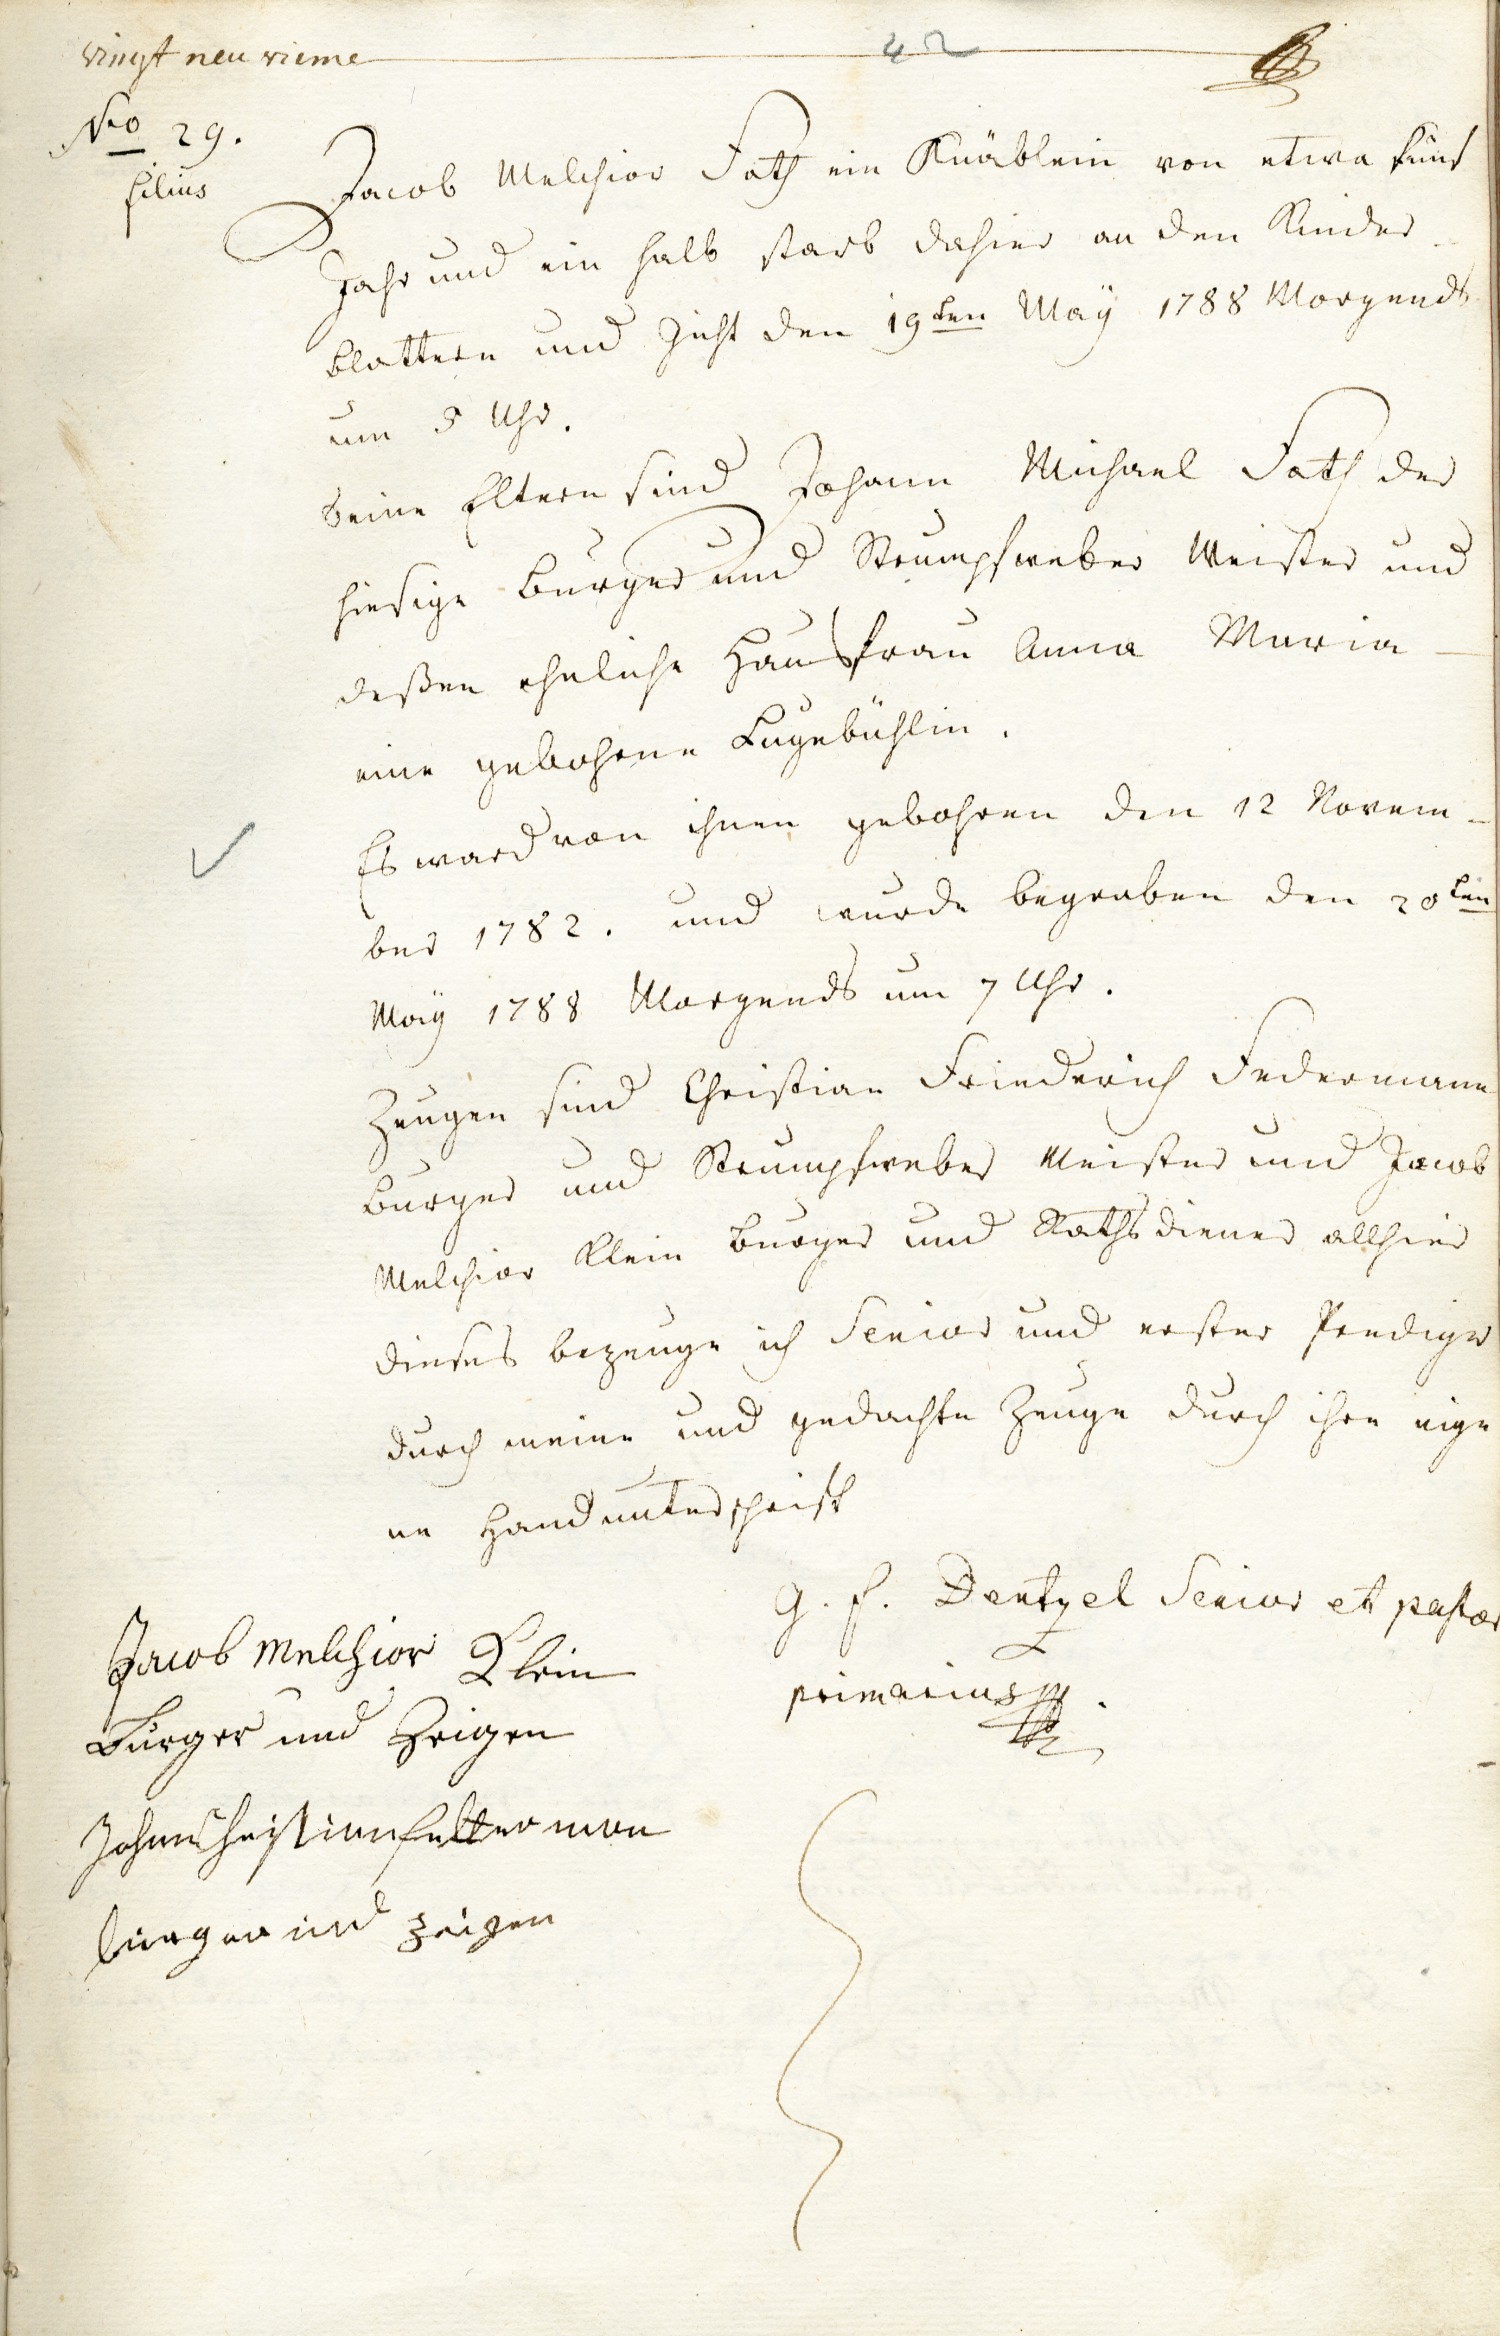 vingt neuvieme
42
No 29.
filius
Jacob Melchior Fath ein Knäblein von etwa fünf
Jahr und ein halb starb dahier an den Kinder
blattern und Gicht den 19ten Maÿ 1788 Morgends
um 5 Uhr.
Seine Eltern sind Johann Michael Fath der
hiesige Burger und Strumpfweber Meister und
deßen eheliche Hausfrau Anna Maria
eine gebohrne Lugebühlin.
Es ward von ihnen gebohren den 12 Novem-
ber 1782. und wurde begraben den 20ten
Maÿ 1788 Morgends um 7 Uhr.
Zeugen sind Christian Friederich Federmann
Burger und Strumpfweber Meister und Jacob
Melchior Klein Burger und Rathsdiener allhier
dieses bezeuge ich Senior und erster Prediger
durch meine und gedachte Zeuge durch ihre eige
ne Handunterschrift
G. F. Dentzel Senior et pastor
primarius
Jacob Melchior Klein
Burger und Zeigen
Johan Christian Fetterman
burger und zeigen